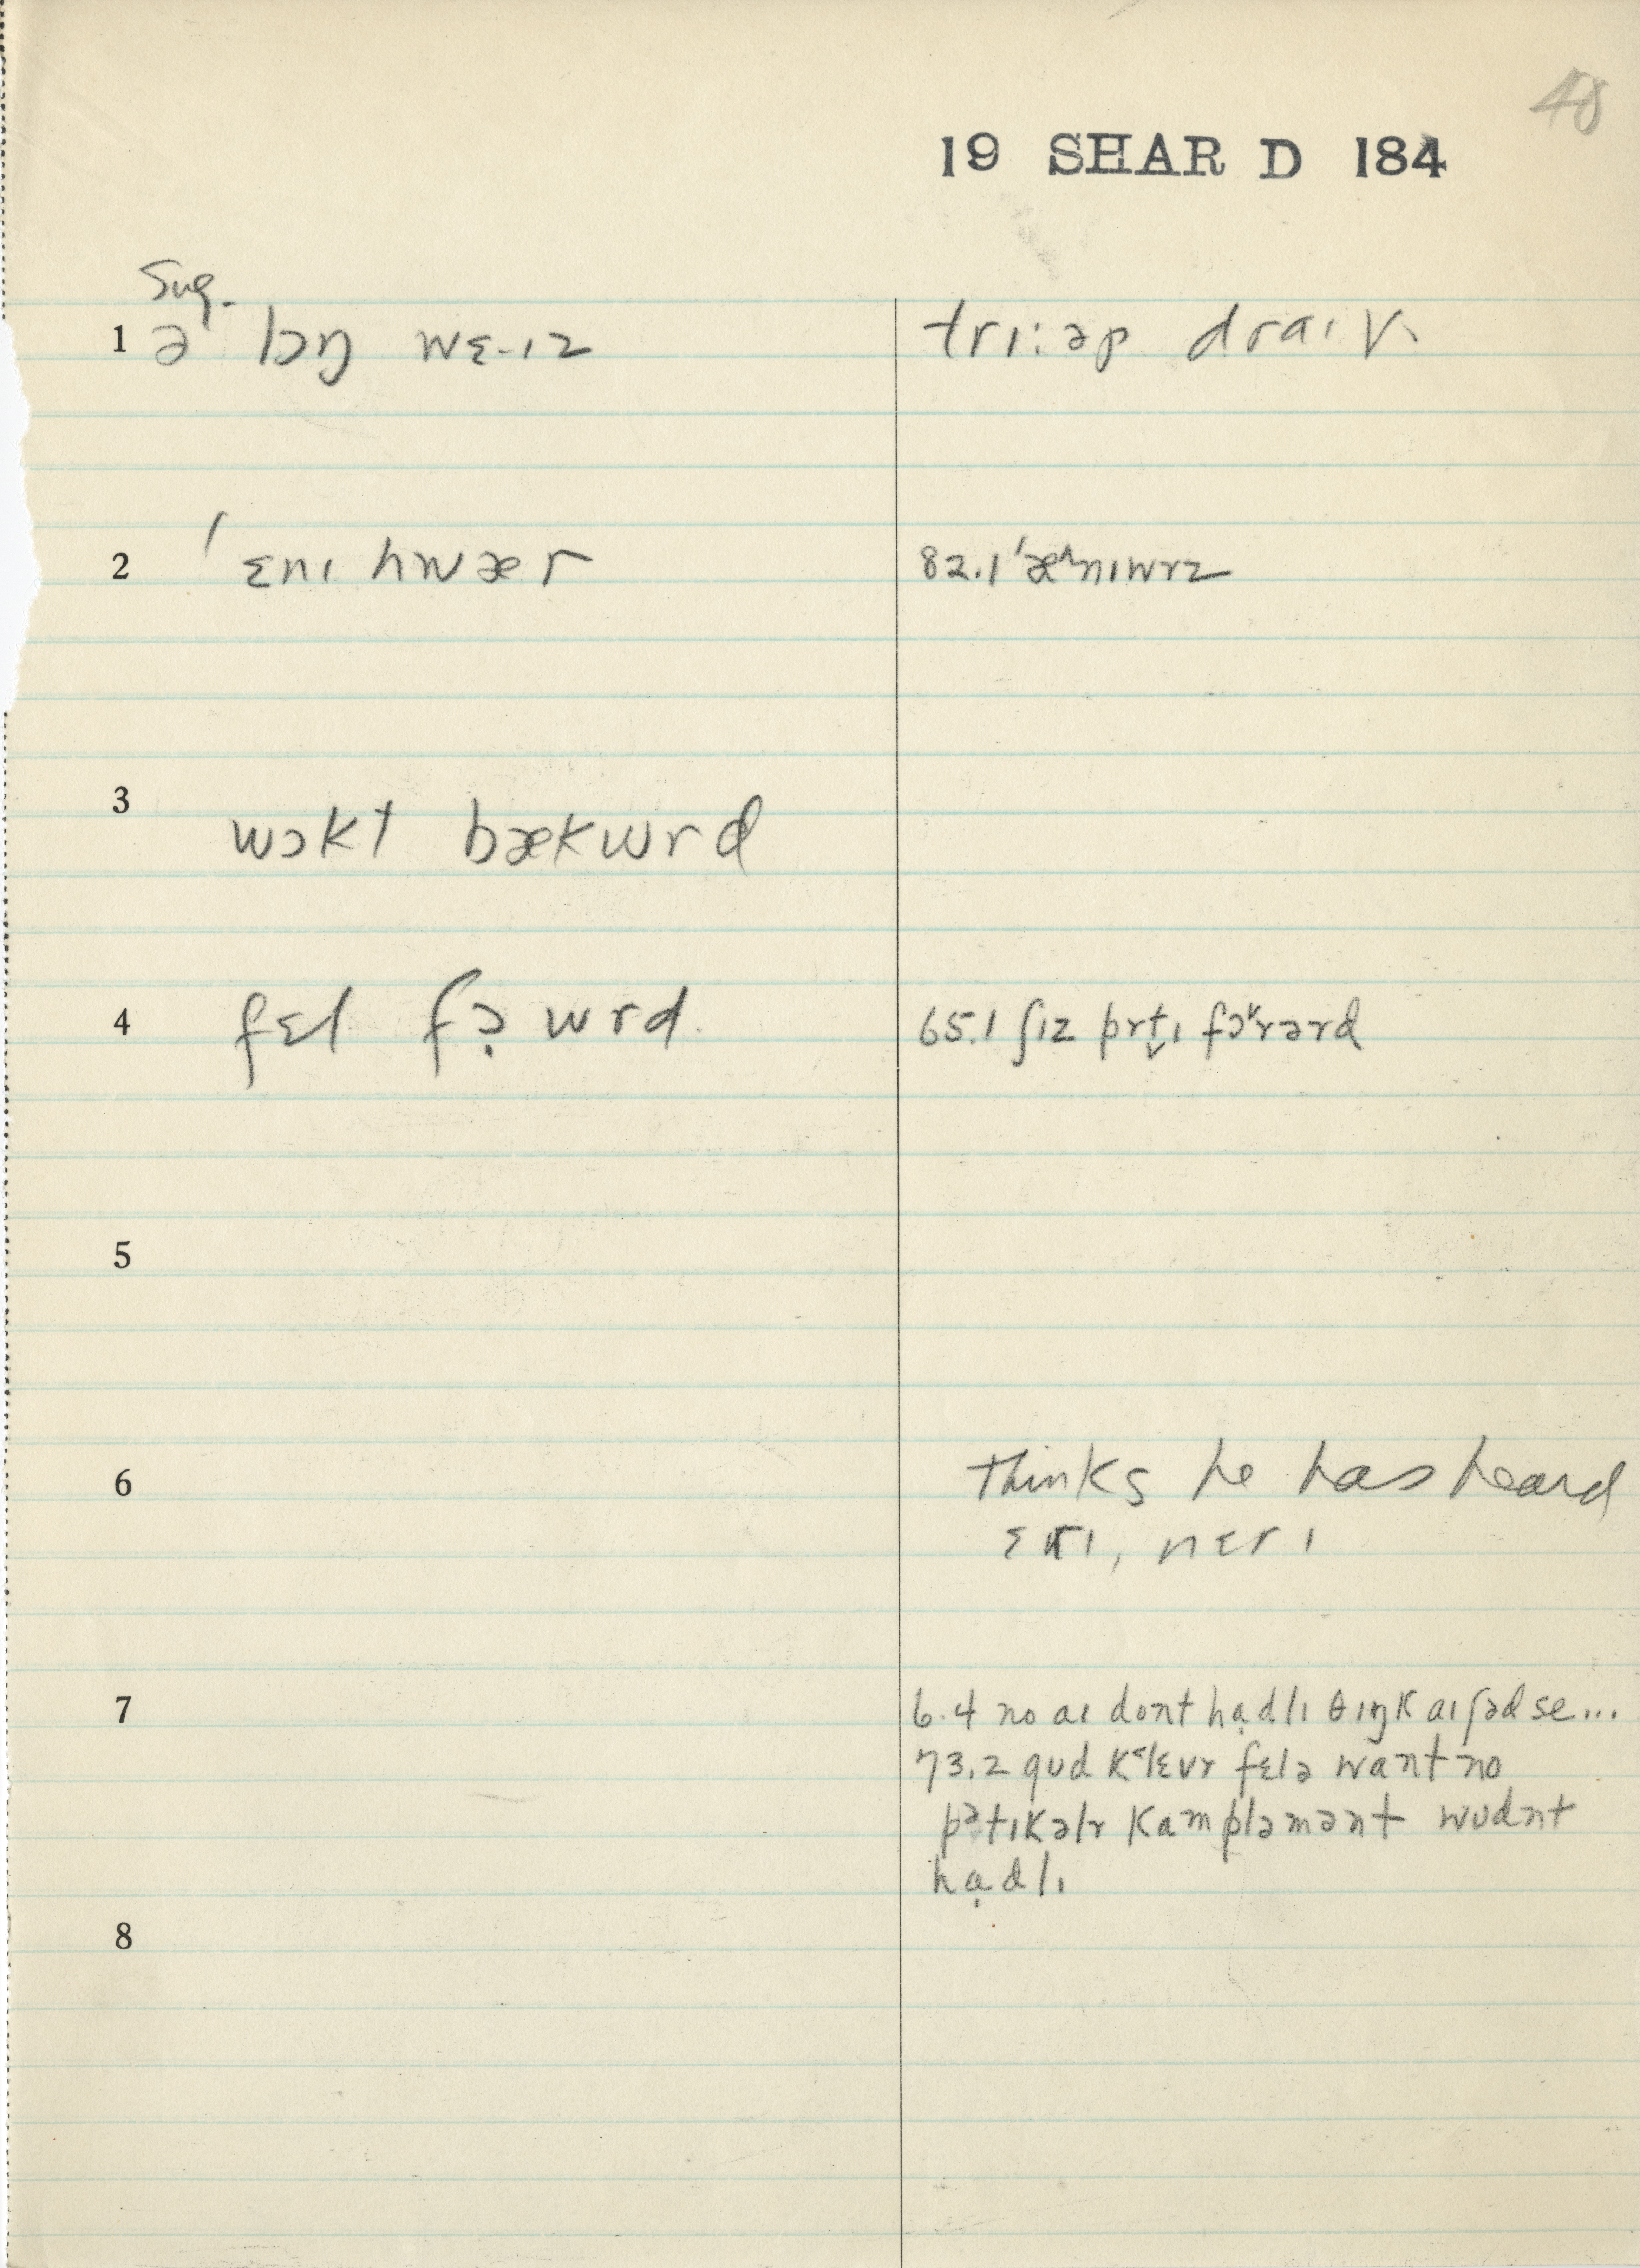 48
19 SHAR D 184
Sug.
1 ə lɔŋ wɛ-ɪz trɪ:əp draɪv
2 ˈɛnɪ hwær 82.1 ˈæᴧnɪwrz
3 wɔkt bækwrd
4 fɛl fɔ̣wrd 65.1 ʃɪz prt̬ɪ fɔ˅rərd
5
6 thinks he has heard
ɛrɪ, nɛrɪ
7 6.4 no aɪ dont hạdlɪ θɪŋk aɪ ʃəd se...
73.2 gud k˂lɛvr fɛlə want no
pətɪkəlr kampləmənt wudnt
hạdlɪ
8